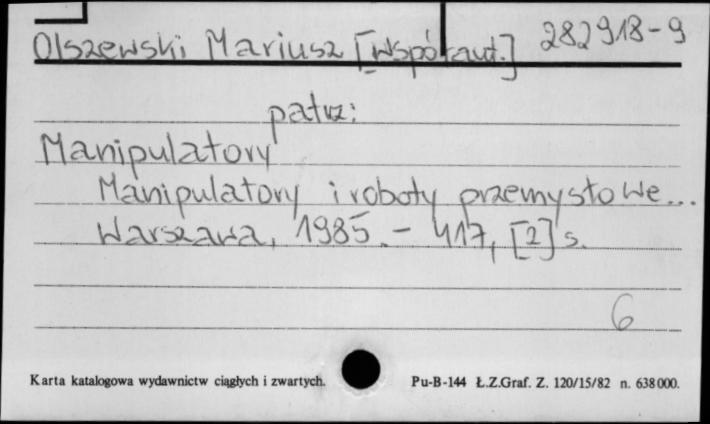 Olszewski Mariusz [współaut.] 282918-9
patrz:
Manipulatory
Manipulatory i roboty przemysłowe...
Warszawa, 1985. - 417, [2] s.
6
Karta katalogowa wydawnictw ciągłych i zwartych. Pu-B-144 Ł.Z.Graf. Z. 120/15/82 n. 638000.